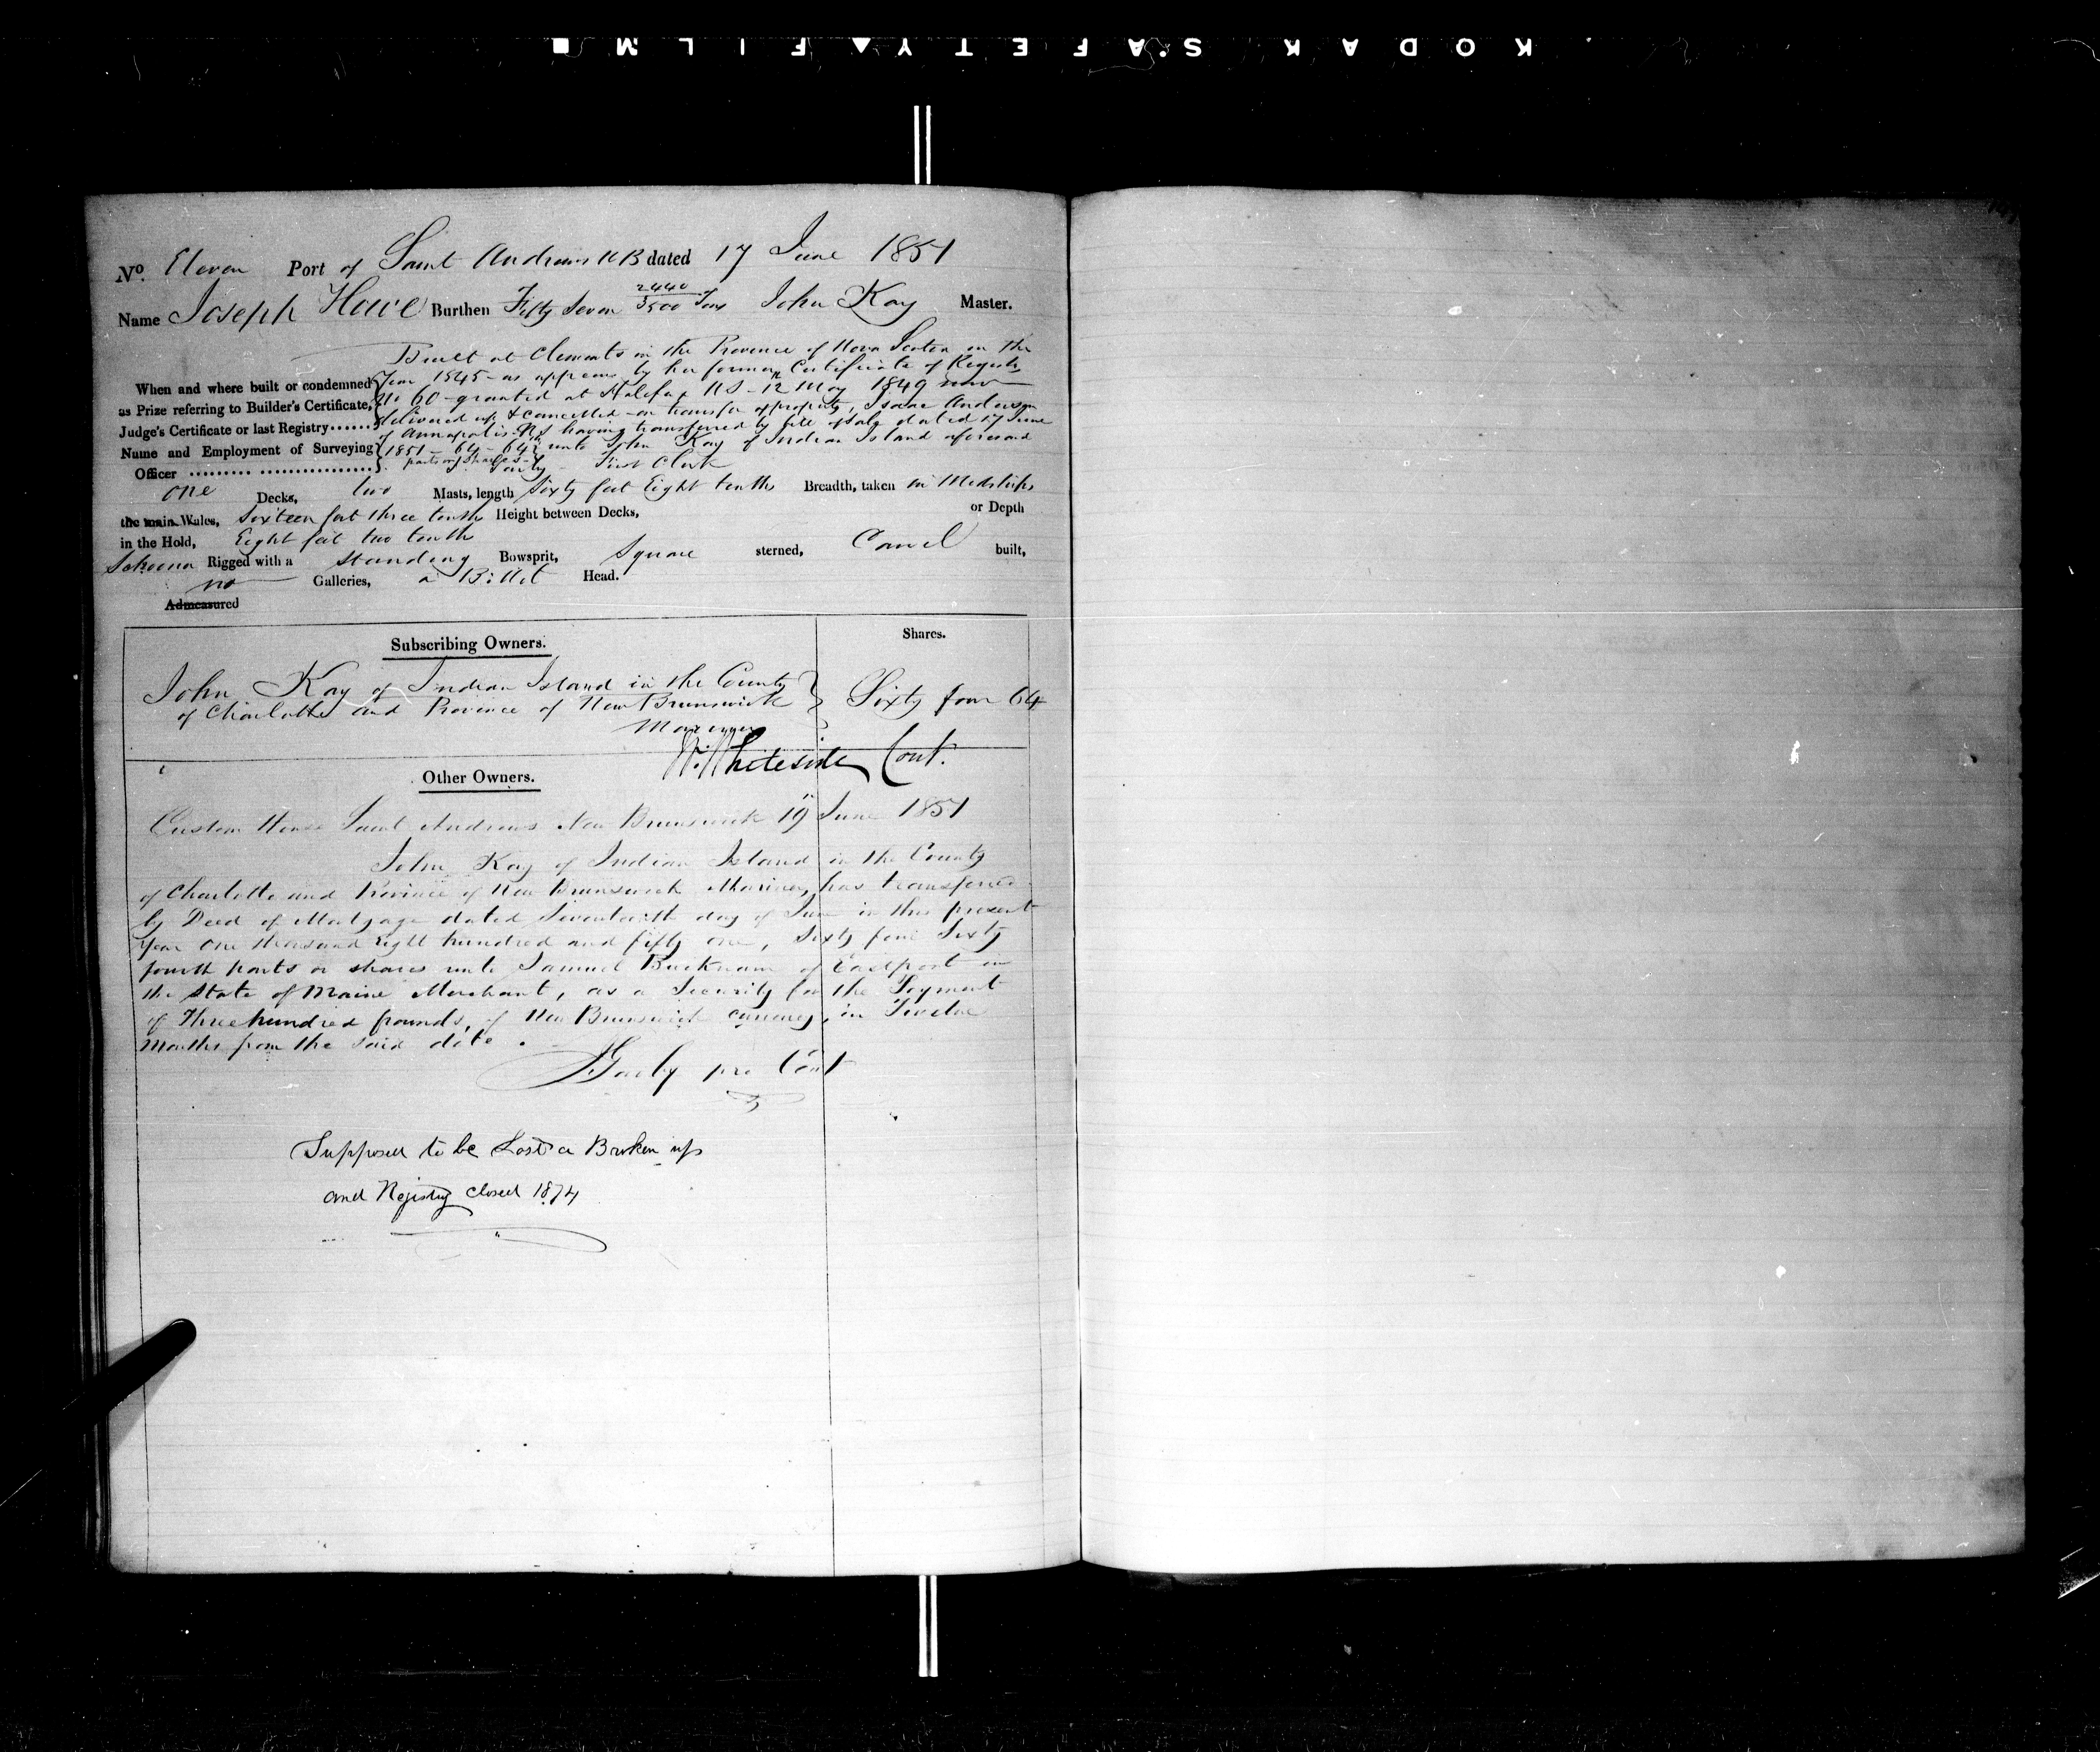 KODAK SAFETY FILM
No. Eleven Port of Saint Andrews NB dated 17 June 1851
Name Joseph Howe Burthen Fifty Seven 2440/3500 Tons John Kay Master.
Built at Clements in the Province of Nova Scotia in the
When and where built or condemned Year 1845 as appears by her former Certificate of Registry
as Prize referring to Builder's Certificate, No 60 granted at Halifax NS - 12 May 1849 now
Judge's Certificate or last Registry...... delivered up & cancelled on transfer of property, Isaac Anderson
of Annapolis NS having transferred by bill of sale dated 17 June
Name and Employment of Surveying 1851 - 64 - 64th unto John Kay of Indian Island aforesaid
parts or shares
Officer First Clerk
One Decks, two Masts, length Sixty feet Eight tenths Breadth, taken in Midships
the main Wales, Sixteen feet three tenths Height between Decks, or Depth
in the Hold, Eight feet two tenths
Schooner Rigged with a standing Bowsprit, Square sterned, Carvel built,
no Galleries, a Billet Head.
Admeasured
Subscribing Owners. Shares.
John Kay of Indian Island in the County
of Charlotte and Province of New Brunswick Sixty four 64
Mariner
W. Whiteside Cont.
Other Owners.
Custom House Saint Andrews New Brunswick 19 June 1851
John Kay of Indian Island in the County
of Charlotte and Province of New Brunswick Mariner, has transferred
by Deed of Mortgage dated Seventeenth day of June in this present
Year One thousand Eight hundred and fifty one, Sixty four Sixty
fourth parts or shares unto Samuel Bucknam of Eastport in
the State of Maine Merchant, as a Security for the Payment
of Three hundred pounds, of New Brunswick currency, in Twelve
Months from the said date.
pro Cont
Supposed to be Lost or Broken up
and Registry closed 1874